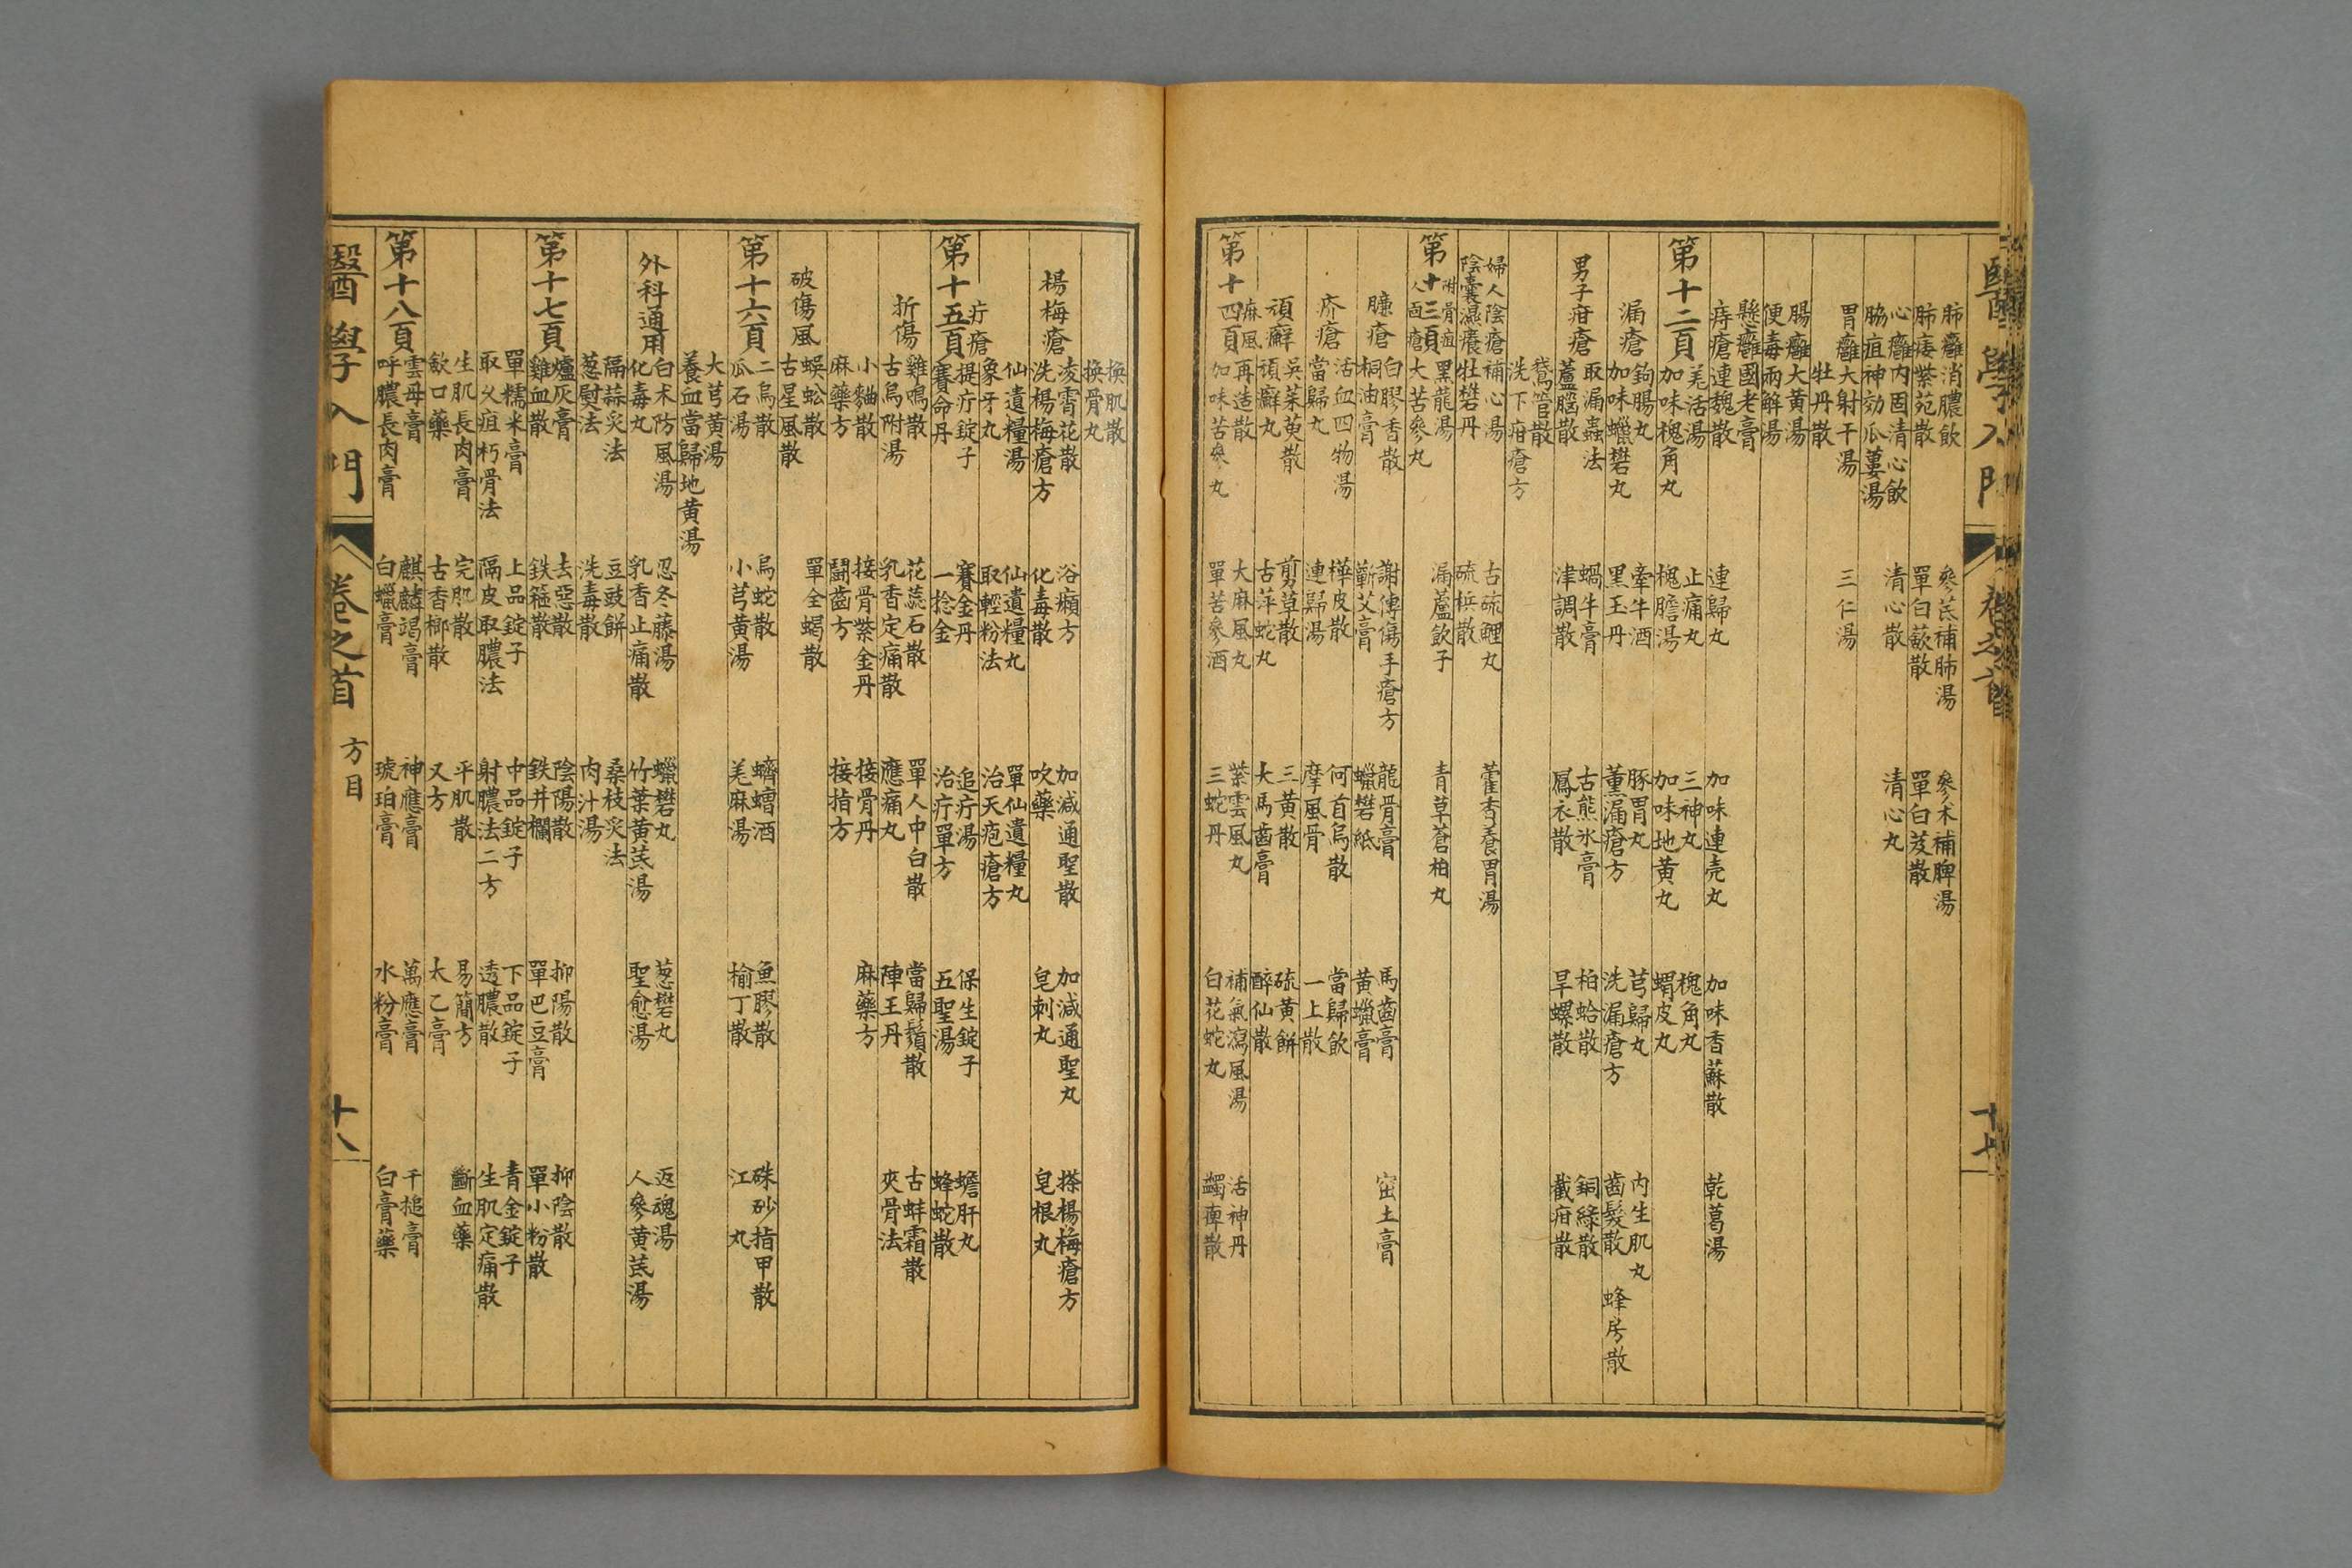 醫學入門 卷之首 十七
肺癰消膿飲 參芪補肺湯 參朮補脾湯
肺痿紫苑散 單白蘞散 單白芨散
心癰內固清心飲 清心散 清心丸
脇疽神効瓜蔞湯
胃癰大射干湯 三仁湯
牡丹散
腸癰大黃湯
便毒兩解湯
懸癰國老膏
痔瘡連魏散 連歸丸 加味連壳丸 加味香蘇散 乾葛湯
第十二頁 羌活湯 止痛丸 三神丸 槐角丸
加味槐角丸 槐膽湯 加味地黃丸 蝟皮丸
漏瘡 鉤腸丸 牽牛酒 豚胃丸 芎歸丸 內生肌丸
加味蠟礬丸 黑玉丹 薰漏瘡方 洗漏瘡方 齒髮散 蜂房散
男子疳瘡 取漏蟲法 蝸牛膏 古熊氷膏 柏蛤散 銅綠散
蘆腦散 津調散 鳬衣散 旱螺散 截疳散
鵞管散
洗下疳瘡方
婦人陰瘡補心湯 古硫鯉丸 藿香養胃湯
陰囊濕癢牡礬丹 硫梹散
第十三頁 附骨疽 黑龍湯 漏蘆飲子 青草蒼柏丸
人面瘡 大苦參丸
臁瘡 白膠香散 謝傳傷手瘡方 龍骨膏 馬齒膏 窑土膏
桐油膏 蘄艾膏 蠟礬紙 黃蠟膏
疥瘡 活血四物湯 樺皮散 何首烏散 當歸飲
當歸丸 連歸湯 摩風膏 一上散
頑癬 吳茱萸散 剪草散 三黃散 硫黃餅
頑癬丸 古萍蛇丸 大馬齒膏 醉仙散
第十四頁 麻風 再造散 大麻風丸 紫雲風丸 補氣瀉風湯 活神丹
加味苦參丸 單苦參酒 三蛇丹 白花蛇丸 蠲痺散
換肌散
換骨丸
楊梅瘡 凌霄花散 浴癩方 加減通聖散 加減通聖丸 搽楊梅瘡方
洗楊梅瘡方 化毒散 吹藥 皂刺丸 皂根丸
仙遺糧湯 仙遺糧丸 單仙遺糧丸
象牙丸 取輕粉法 治天疱瘡方
第十五頁 疔瘡 提疔錠子 賽金丹 追疔湯 保生錠子 蟾肝丸
賽命丹 一捻金 治疔單方 五聖湯 蜂蛇散
折傷 雞鳴散 花蕊石散 單人中白散 當歸鬚散 古蚌霜散
古烏附湯 乳香定痛散 應痛丸 陣王丹 夾骨法
小麯散 接骨紫金丹 接骨丹 麻藥方
麻藥方 鬪齒方 接指方
破傷風 蜈蚣散 單全蝎散
古星風散
第十六頁 二烏散 烏蛇散 蠐螬酒 魚膠散 硃砂指甲散
瓜石湯 小芎黃湯 羌麻湯 榆丁散 江丸
大芎黃湯
養血當歸地黃湯
外科通用 白朮防風湯 忍冬藤湯 蠟礬丸 葱礬丸 返魂湯
化毒丸 乳香止痛散 竹葉黃芪湯 聖愈湯 人參黃芪湯
隔蒜炙法 豆豉餅 桑枝炙法
葱熨法 洗毒散 肉汁湯
第十七頁 爐灰膏 去惡散 陰陽散 抑陽散 抑陰散
雞血散 鉄箍散 鉄井欄 單巴豆膏 單小粉散
單糯米膏 上品錠子 中品錠子 下品錠子 青金錠子
取久疽朽骨法 隔皮取膿法 射膿法二方 透膿散 生肌定痛散
生肌長肉膏 完肌散 平肌散 易簡方 斷血藥
歛口藥 古香榔散 又方 太乙膏
第十八頁 雲母膏 麒麟竭膏 神應膏 萬應膏 千槌膏
呼膿長肉膏 白蠟膏 琥珀膏 水粉膏 白膏藥
醫學入門 卷之首 方目 十八